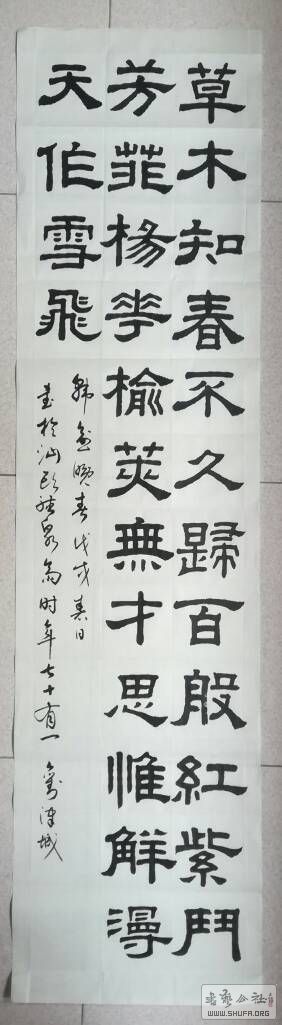 草木知春不久歸百般紅紫鬥
芳菲楊花榆莢無才思惟解漫
天作雪飛
韓愈晚春戊戌春日
書於汕 时年七十有一
WWW.SHUFA.ORG